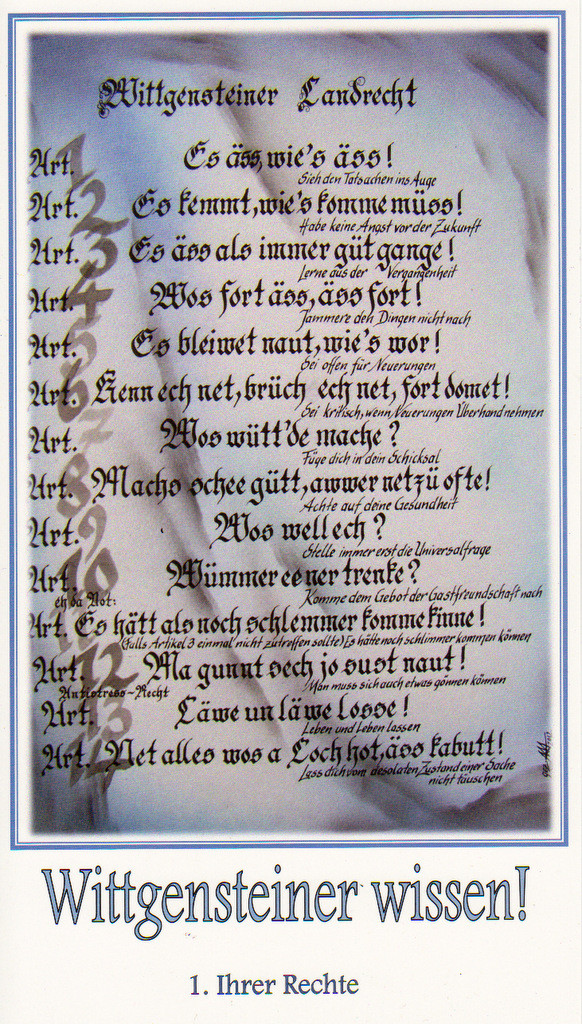 Wittgensteiner Landrecht
Art. 1 Es äss, wie's äss!
Sieh den Tatsachen ins Auge
Art. 2 Es kemmt, wie's komme müss!
Habe keine Angst vor der Zukunft
Art. 3 Es äss als immer güt gange!
Lerne aus der Vergangenheit
Art. 4 Wos fort äss, äss fort!
Jammere den Dingen nicht nach
Art. 5 Es bleiwet naut, wie's wor!
Sei offen für Neuerungen
Art. 6 Kenn ech net, brüch ech net, fort domet!
Sei kritisch, wenn Neuerungen Überhand nehmen
Art. 7 Wos wütt'de mache?
Füge dich in dein Schicksal
Art. 8 Machs schee gütt, awwer net zü ofte!
Achte auf deine Gesundheit
Art. 9 Wos well ech?
Stelle immer erst die Universalfrage
Art. 10 Wümmer ee ner trenke?
Komme dem Gebot der Gastfreundschaft nach
eh da Not:
Art. 11 Es hätt als noch schlemmer komme kinne!
(falls Artikel 3 einmal nicht zutreffen sollte) Es hätte noch schlimmer kommen können
Art. 12 Ma gunnt sech jo sust naut!
Man muss sich auch etwas gönnen können
Antistress-Recht
Art. 13 Läwe un läwe losse!
Leben und Leben lassen
Art. 14 Net alles wos a Loch hot, äss kabutt!
Lass dich vom desolaten Zustand einer Sache
nicht täuschen
Wittgensteiner wissen!
1. Ihrer Rechte